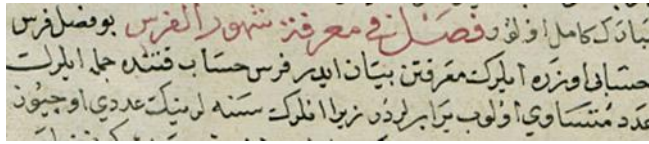 كامل اولور فصل فی معرفة شهور الفرس بو فصل فرس
حسابی اوزره ایلرك معرفتن بیان ایدر فرس حساب قتنده جمله ایلرك
عدد متساوی اولوب برابرلردر زیرا انلرك سنه لرینك عددی اوجیوز